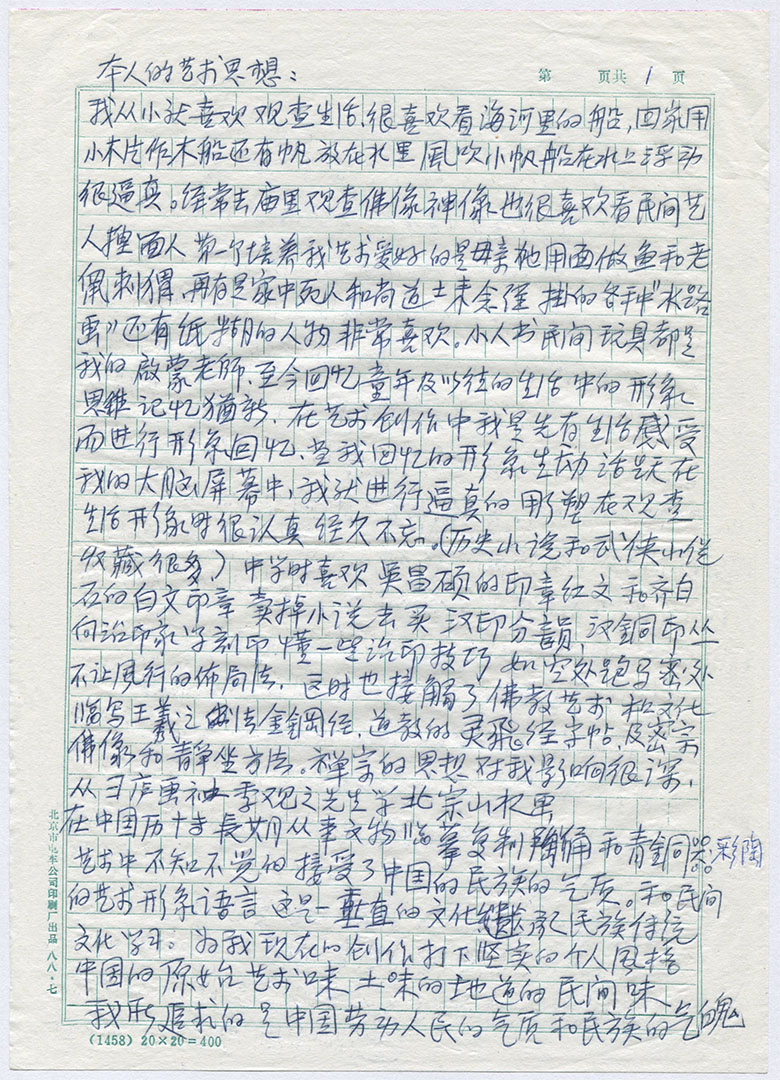 本人的艺术思想：
第 页共 1 页
我从小就喜欢观查生活，很喜欢看海河里的船，回家用
小木片作木船还有帆放在水里風吹小帆船在水上浮动
很逼真。经常去庙里观查佛像神像也很喜欢看民间艺
人捏面人第一个培养我艺术爱好的是母亲她用面做鱼和老
佩刺猬，再有是家中死人和尚道士来念经掛的各种"水路
画"还有纸糊的人物非常喜欢。小人书民间玩具都是
我的啟蒙老师，至今回忆童年及以往的生活中的形象
思维记忆猶新，在艺术创作中我是先有生活感受
而进行形象回忆，当我回忆的形象生动活跃在
我的大脑屏幕中，我就进行逼真的雕塑在观查
生活形象时很认真经久不忘。（历史小说和武侠小说
收藏很多）中学时喜欢吴昌硕的印章红文和齐白
石的白文印章卖掉小说去买汉印分韻，汉銅印丛
向治印家学刻印懂一些治印技巧如空处跑马密处
不让風行的佈局法，这时也接触了佛教艺术和文化
临写王羲之书法金鋼经，道教的灵飛经字帖，及密宗
佛像和静坐方法。禅宗的思想对我影响很深，
从 季观之先生学北宗山水画
在中国历 馆长期从事文物临摹复制陶俑和青銅器彩陶
艺术中不知不觉的接受了中国的民族的气质。和民间
的艺术形象语言这是一垂直的文化继承民族传统
文化学习。为我现在的创作打下坚实的个人風格
中国的原始艺术味土味的地道的民间味
我所追求的是中国劳动人民的气质和民族的气魄
北京市电车公司印刷厂出品 八八·七
(1458) 20×20=400